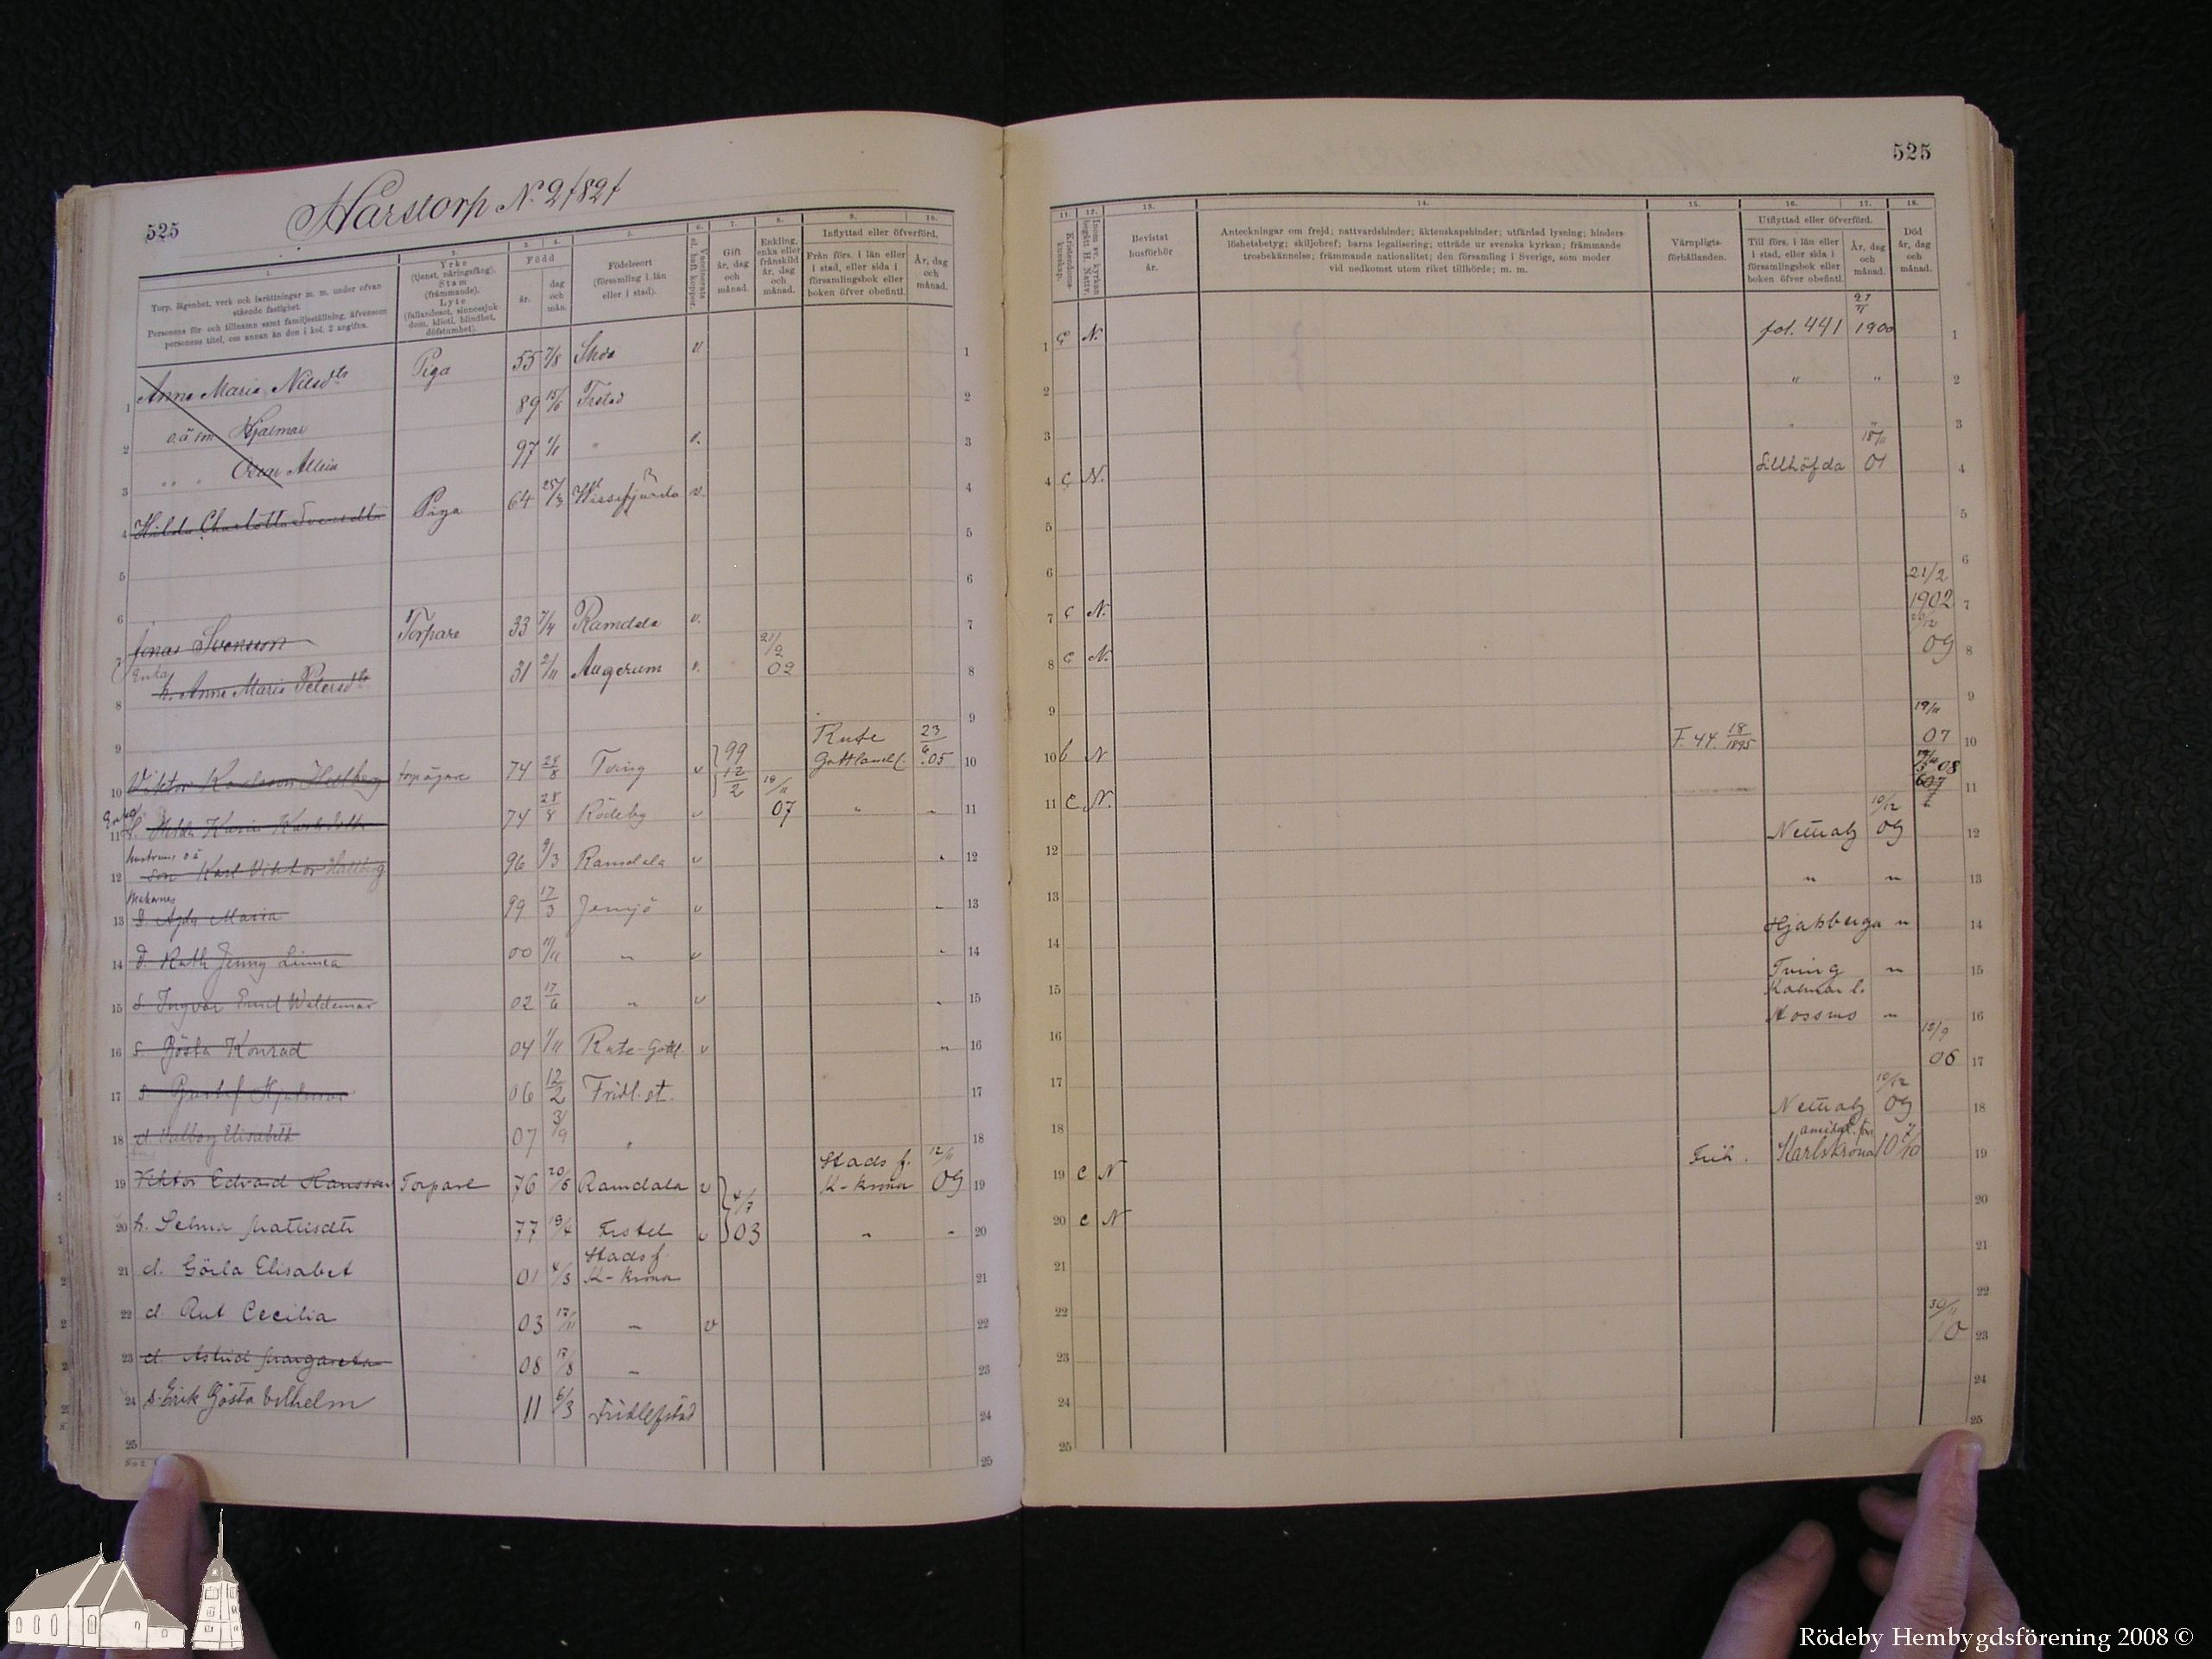 525
Hårstorp N. 2/82/
1.
Torp, lägenhet, verk och inrättningar m. m. under ofvan
stående fastighet.
Personens för- och tillnamn samt familjeställning, äfvensom
personens titel, om annan än den i kol. 2 angifna.
2.
Yrke
(tjenst, näringsfång).
Stam
(främmande).
Lyte
(fallandesot, sinnessjuk-
dom, idioti, blindhet,
döfstumhet).
3. 4.
Född
år.
dag
och
mån.
5.
Födelseort
(församling i län
eller i stad).
6.
Vaccinerats
el. haft koppor.
7.
Gift
år, dag
och
månad.
8.
Enkling,
enka eller
frånskild
år, dag
och
månad.
9. 10.
Inflyttad eller öfverförd.
Från förs. i län eller
i stad, eller sida i
församlingsbok eller
boken öfver obefintl.
År, dag
och
månad.
1 Anna Maria Nilsdtr Piga 55 7/8 v.
2 o.ä son Hjalmar 89 15/6 Frstad
3 " " Oscar 97 " v.
4 Hilda Charlotta Svensdtr Piga 64 25/3 Wissefjärda v.
5
6
7 Jonas Svensson Torpare 33 7/4 Ramdala v.
8 Enka h. Anna Maria Petersdtr 31 2/11 Augerum v. 21/2 02
9
10 Viktor Karlsson Hallberg torpägare 74 28/8 Tving v 99 12/2 Rute Gottland l. 23/6 05
11 Enka h. Hilda Karin Karlsdotter 74 28/8 Rödeby v 19/11 07 "
12 hustruns o ä son Karl Viktor Hallberg 96 9/3 Ramdala v
13 Makarnes d. Agda Maria 99 17/3 Jemjö v
14 d. Ruth Jenny Linnea 00 " v
15 s. Ingvar Emil Waldemar 02 17/6 " v
16 s. Gösta Konrad 04 1/11 Rute-Gottl. v
17 s. Gustaf Hjalmar 06 12/2 Fridl.st.
18 d. Valborg Elisabeth 07 3/9 "
19 Viktor Edvard Hansson Torpare 76 20/6 Ramdala v 4/7 03 Stads f. K-krona 12/11 09
20 h. Selma Mattisdtr 77 19/4 v "
21 d. Görla Elisabet 01 4/3 Stads f. K-krona
22 d. Rut Cecilia 03 17/11 " v
23 d. Astrid Margareta 08 17/8 "
24 s. Erik Gösta Vilhelm 11 6/3 Fridlefstad
25
525
11.
Kristendoms-
kunskap.
12.
Inom sv. kyrkan
begått H. Nattv.
13.
Bevistat
husförhör
år.
14.
Anteckningar om frejd; nattvardshinder; äktenskapshinder; utfärdad lysning; hinders-
löshetsbetyg; skiljobref; barns legalisering; utträde ur svenska kyrkan; främmande
trosbekännelse; främmande nationalitet; den församling i Sverige, som moder
vid nedkomst utom riket tillhörde; m. m.
15.
Värnpligts-
förhållanden.
16. 17.
Utflyttad eller öfverförd.
Till förs. i län eller
i stad, eller sida i
församlingsbok eller
boken öfver obefintl.
År, dag
och
månad.
18.
Död
år, dag
och
månad.
1 C N. fol. 441 27/11 1900
2 " "
3 " "
4 C N. Sillhöfda 18/11 01
5
6
7 C N. 21/2 1902
8 C N. 09
9
10 b N F. 44. 18/1895 19/11 07
11 C N. 08
12 Nettraby 10/12 09
13 " "
14 Hjalsberga "
15 Tving "
16 Kalmar l. Hossmo "
17 12/9 06
18 Nettraby 10/12 09
19 C N Frik. Karlskrona 10
20 C N
21
22
23 30/11 10
24
25
Rödeby Hembygdsförening 2008 ©